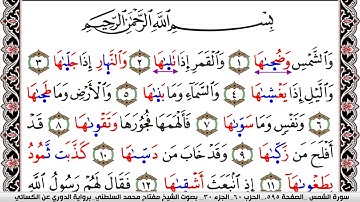 بِسْمِ ٱللَّهِ ٱلرَّحْمَٰنِ ٱلرَّحِيمِ
وَٱلشَّمْسِ وَضُحَىٰهَا ١ وَٱلْقَمَرِ إِذَا تَلَىٰهَا ٢ وَٱلنَّهَارِ إِذَا جَلَّىٰهَا ٣
وَٱلَّيْلِ إِذَا يَغْشَىٰهَا ٤ وَٱلسَّمَآءِ وَمَا بَنَىٰهَا ٥ وَٱلْأَرْضِ وَمَا طَحَىٰهَا
٦ وَنَفْسٍ وَمَا سَوَّىٰهَا ٧ فَأَلْهَمَهَا فُجُورَهَا وَتَقْوَىٰهَا ٨ قَدْ
أَفْلَحَ مَن زَكَّىٰهَا ٩ وَقَدْ خَابَ مَن دَسَّىٰهَا ١٠ كَذَّبَتْ ثَمُودُ
بِطَغْوَىٰهَا ١١ إِذِ ٱنۢبَعَثَ أَشْقَىٰهَا ١٢ فَقَالَ لَهُمْ رَسُولُ ٱللَّهِ
سورة الشمس الصفحة ٥٩٥ الحزب ٦٠ الجزء ٣٠ بصوت الشيخ مفتاح محمد السلطني برواية الدوري عن الكسائي